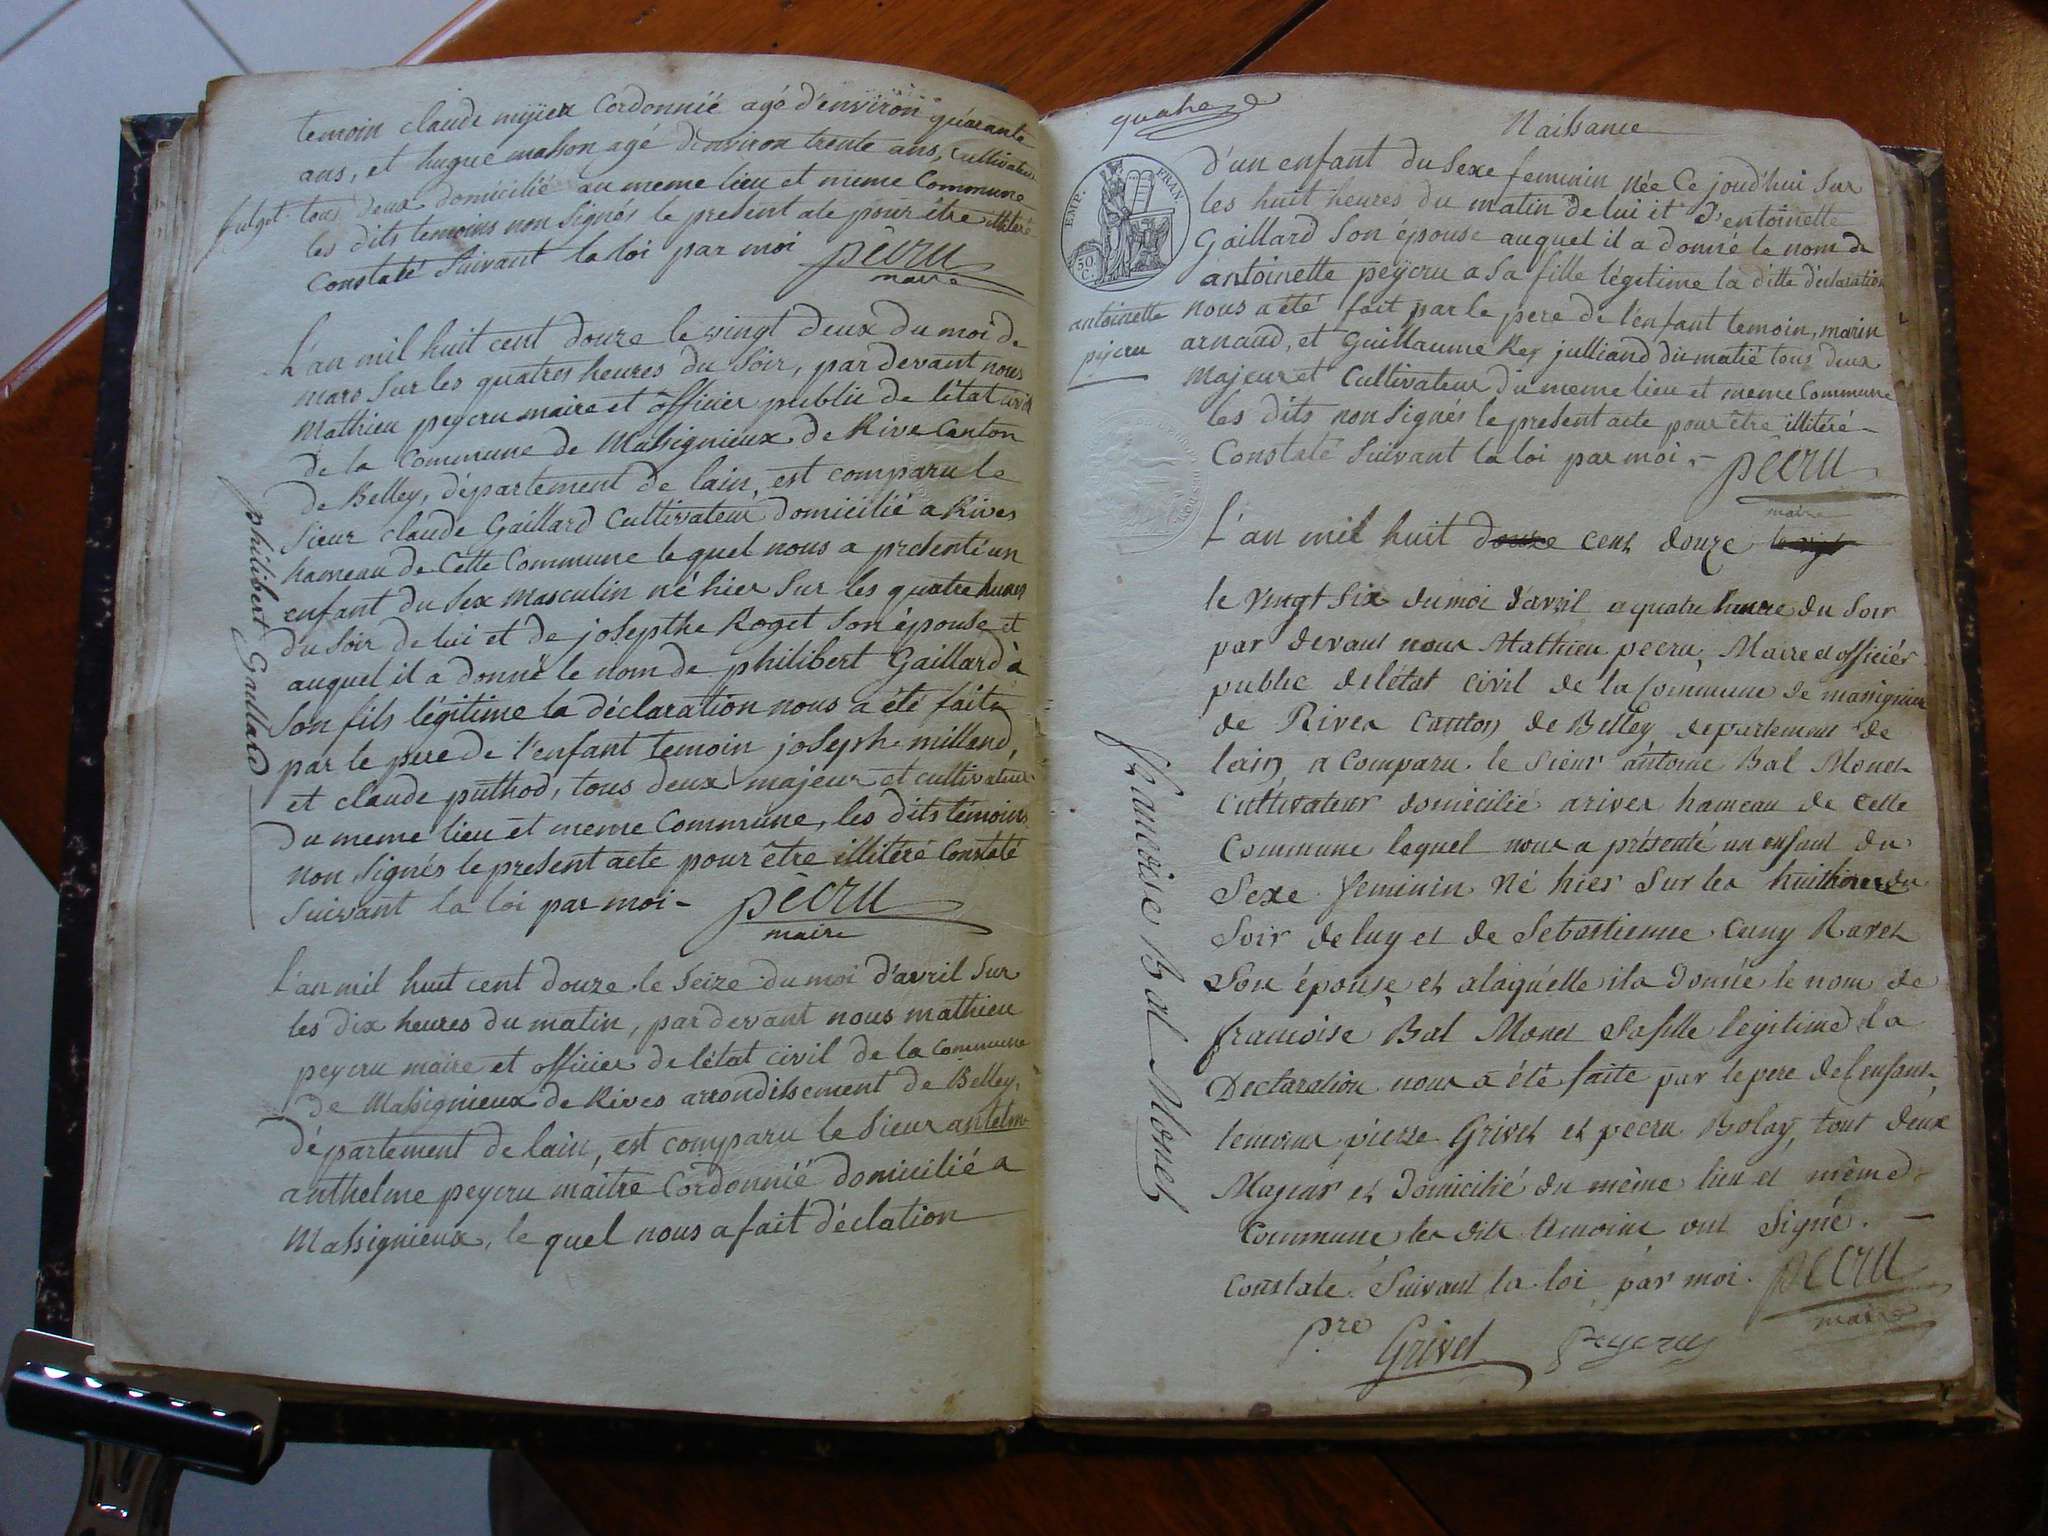 temoin claude myiex Cordonnié agé d'environ quárante
ans, et hugue masson agé d'environ trente ans, Cultivateur
tous deux domicilié au meme lieu et meme Commune
les dits temoins non Signés le present ate pour être illitéré
Constaté Suivant la loi par moi pècru
maire
L'an mil huit cent douze le vingt deux du moi de
mars Sur les quatres heures du Soir, par devant nous
Mathieu peycru maire et officier public de l'état civil
de la Commune de Massignieux de Rive Canton
de Belley, département de lain, est comparu le
Sieur claude Gaillard Cultivateur domicilié a Rives
hameau de Cette Commune le quel nous a présenté un
enfant du Sex masculin né hier Sur les quatre heures
du Soir de lui et de josepthe Roget Son épouse et
auquel il a donné le nom de philibert Gaillard à
Son fils légitime la déclaration nous a été faite
par le pere de l'enfant temoin joseph milland,
et claude puthod, tous deux majeur et cultivateur
du meme lieu et meme Commune, les dits témoins
non Signés le present acte pour être illitéré Constaté
Suivant la loi par moi - pècru
maire
philibert Gaillard
l'an mil huit cent douze le Seize du moi d'avril Sur
les dix heures du matin, par devant nous mathieu
peycru maire et officier de l'état civil de la commune
de Massignieux de Rives arrondissement de Belley,
département de lain, est comparu le Sieur antelm
anthelme peycru maitre Cordonnié domicilié a
Massignieux, le quel nous a fait déclation
quatorze
Naissance
EMP. FRAN.
50 C.
d'un enfant du Sexe feminin née Ce jourd'hui Sur
les huit heures du matin de lui et d'entoinette
Gaillard Son épouse auquel il a donné le nom de
antoinette peycru a Sa fille légitime la ditte déclaration
nous a été fait par le pere de l'enfant temoin, marin
arnaud, et Guillaume Rey julliand du matié tous deux
Majeur et Cultivateur du meme lieu et meme Commune
les dits non Signés le present acte pour être illitéré -
Constaté Suivant la loi par moi - pècru
maire
antoinette
peycru
L'an mil huit douze cent douze
le Vingt Six du moi d'avril a quatre heure du Soir
par devant nous Mathieu pecru, Maire et officiér
public de létat civil de la Commune de massignieu
de Rives Canton de Belley departement de
lain a Comparu le Sieur antoine Bal Monet
Cultivateur domicilié a rives hameau de Cette
Commune lequel nous a présenté un enfant du
Sexe feminin Né hier Sur les huit heures du
Soir de luy et de Sebastienne Cuny Ravet
Son épouse et alaquélle il a Donnée le nom de
francoise Bal Monet Sa fille legitime La
Declaration nous a été faite par le pere de l'enfant
temoins pierre Grivet et pecru Bolay, tout deux
Majeur et Domicilié du même lieu et même
Commune les dits temoins ont Signé. -
Constaté Suivant la loi par moi. pecru
maire
pre Grivet peycru
francoise Bal Monet